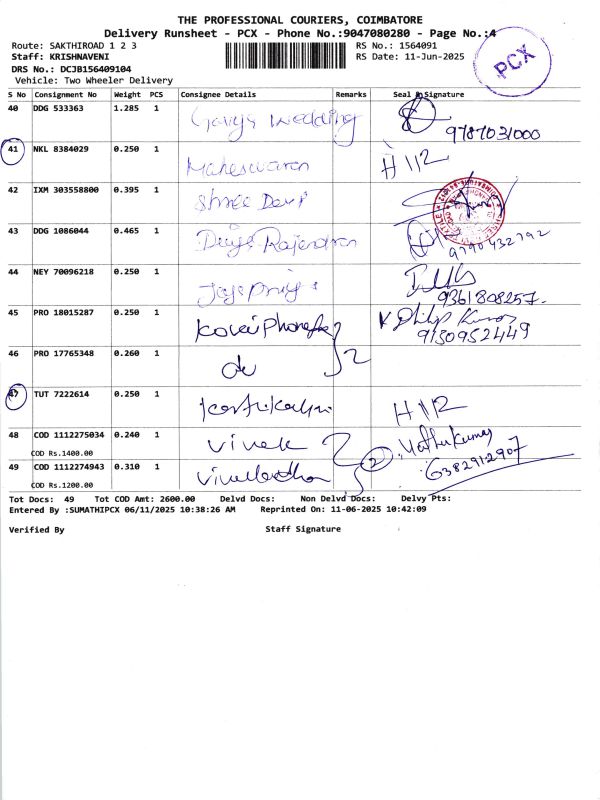 THE PROFESSIONAL COURIERS, COIMBATORE
Delivery Runsheet - PCX - Phone No.:9047080280 - Page No.:4
Route: SAKTHIROAD 1 2 3
Staff: KRISHNAVENI
DRS No.: DCJB156409104
Vehicle: Two Wheeler Delivery
RS No.: 1564091
RS Date: 11-Jun-2025
PCX
S No Consignment No Weight PCS Consignee Details Remarks Seal & Signature
40 DDG 533363 1.285 1 Wedding 9787031000
41 NKL 8384029 0.250 1 Maheswaran H112
42 IXM 303558800 0.395 1 Shree Devi
43 DDG 1086044 0.465 1 Rajendran 9790432792
44 NEY 70096218 0.250 1 9361808257
45 PRO 18015287 0.250 1 Kovai Phone K Philip Kumar 9150952449
46 PRO 17765348 0.260 1 do 2
47 TUT 7222614 0.250 1 H112
48 COD 1112275034 0.240 1 Vivek Muthukumar
COD Rs.1400.00
49 COD 1112274943 0.310 1 2 6382912907
COD Rs.1200.00
Tot Docs: 49 Tot COD Amt: 2600.00 Delvd Docs: Non Delvd Docs: Delvy Pts:
Entered By :SUMATHIPCX 06/11/2025 10:38:26 AM Reprinted On: 11-06-2025 10:42:09
Verified By Staff Signature